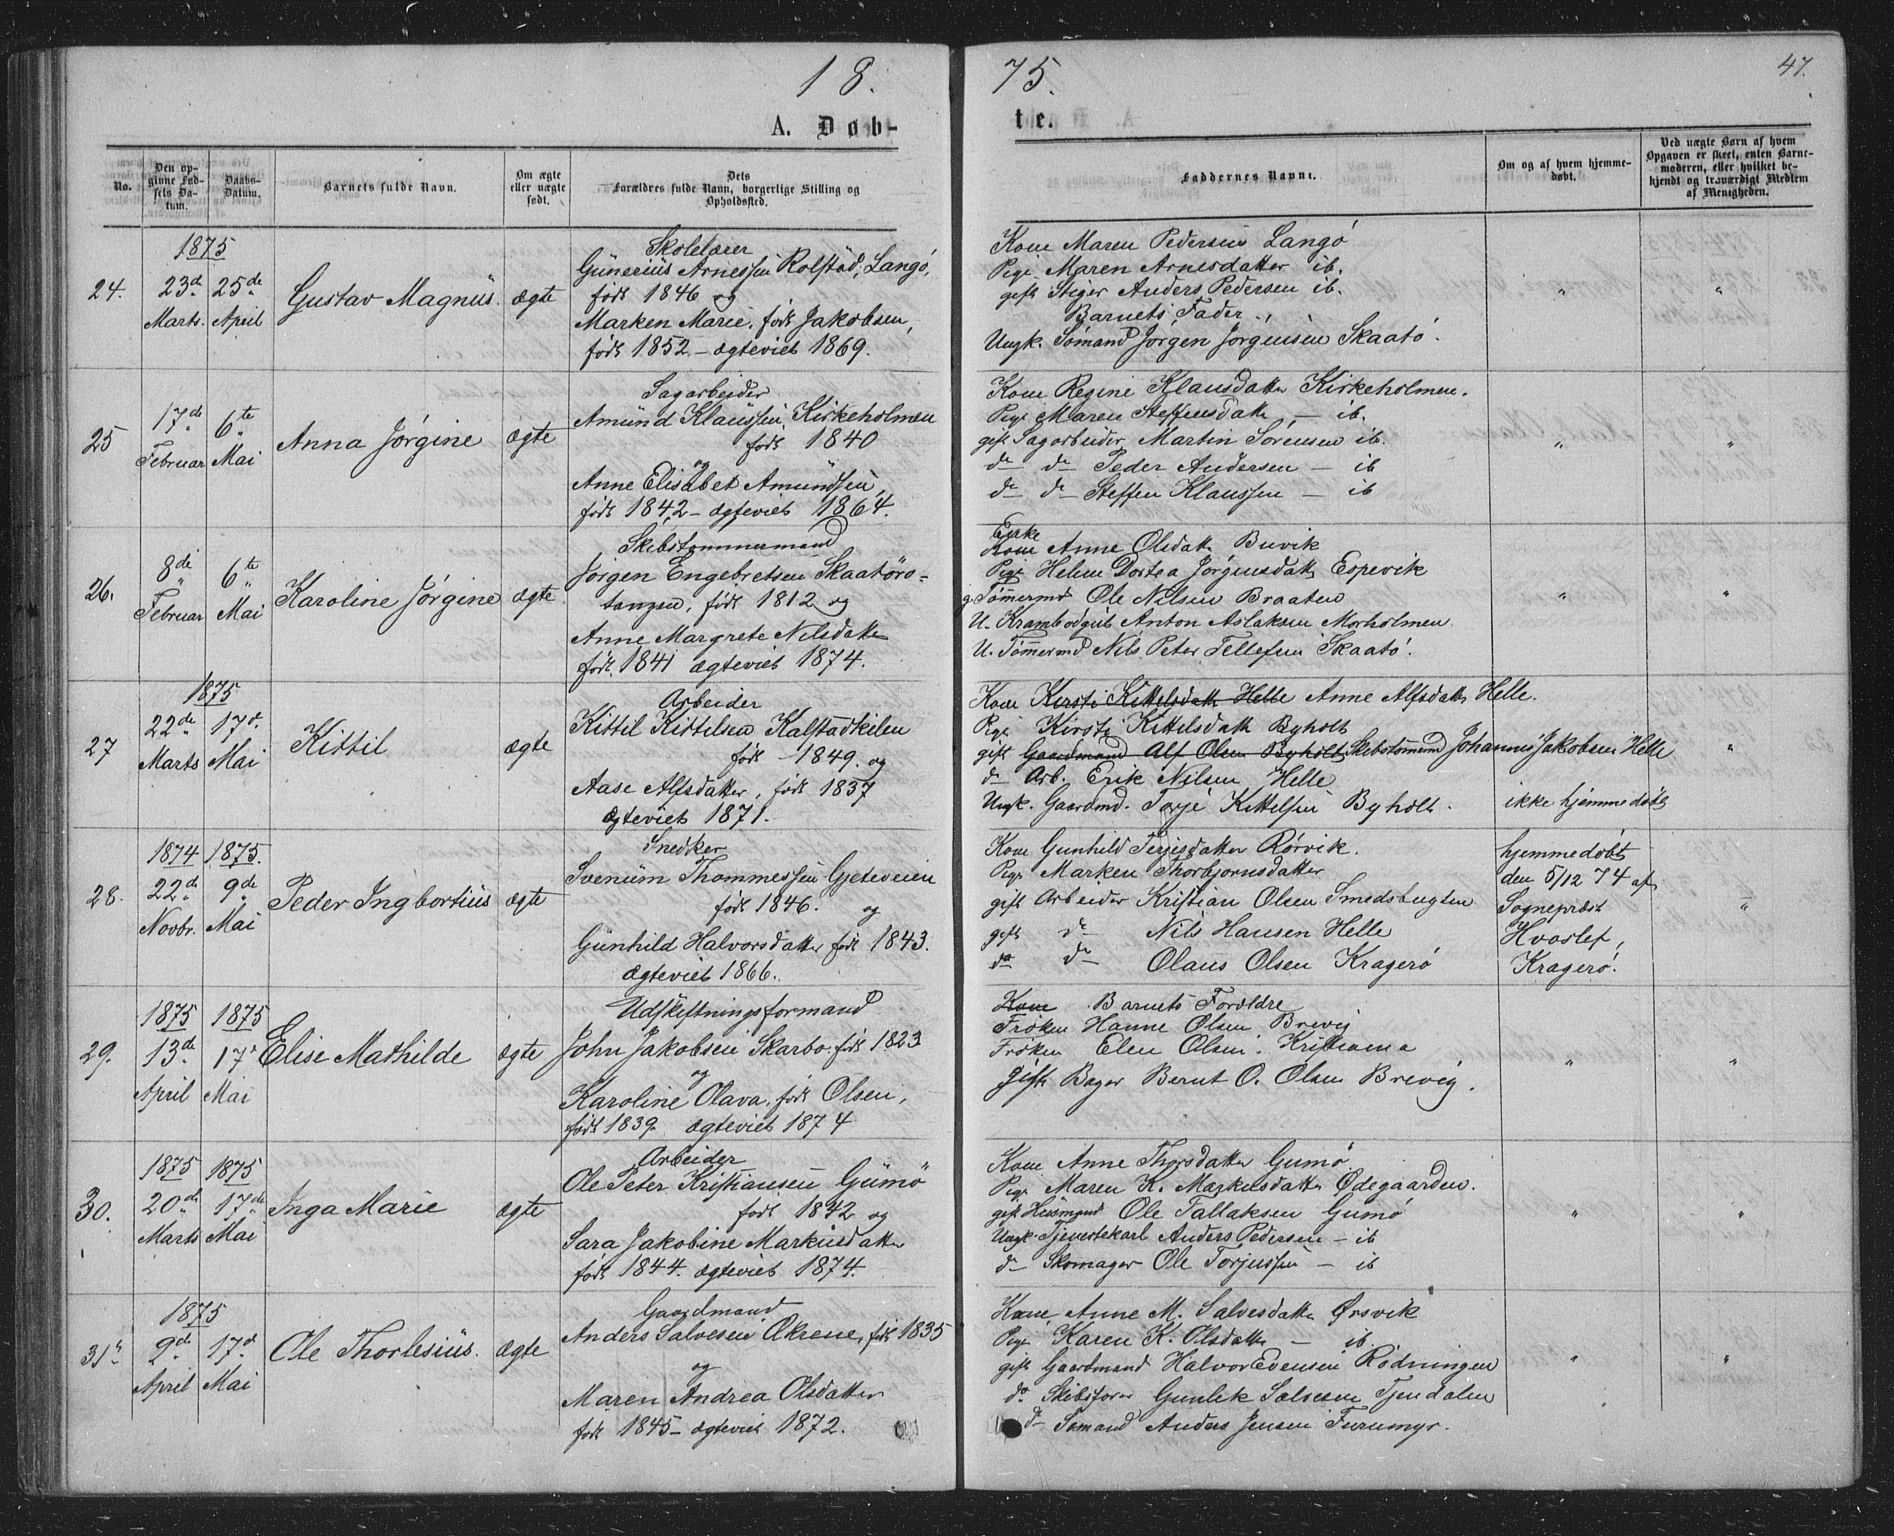 18. 75. 47.
A. Døb- te.
No.
Den opgivne Fødsels Datum.
Daabs-Datum.
Barnets fulde Navn.
Om ægte eller uægte født.
Dets Forældres fulde Navn, borgerlige Stilling og Opholdssted.
Faddernes Navne.
Om og af hvem hjemmedøbt.
Ved uægte Børn af hvem Opgaven er skeet, enten Barnemoderen, eller hvilket bekjendt og troværdigt Medlem af Menigheden.
24.
1875
23d Marts.
25de April
Gustav Magnus.
ægte
Skolelærer
Gunerius Arnessen Rolstad, Langø,
født 1846 og
Marken Marie, født Jakobsen,
født 1852 - ægteviet 1869.
Kone Maren Pedersen Langø
Pige Maren Arnesdatter ib.
gift Stiger Anders Pedersen ib.
Barnets Fader.
Ungk. Sømand Jørgen Jørgensen Skaatø.
"
"
25
17de Februar
6te Mai
Anna Jørgine
ægte
Sagarbeider
Amund Klaussen, Kirkeholmen
født 1840
og
Anne Elisabet Amundsen,
født 1842 - ægteviet 1864.
Kone Regine Klausdatter Kirkeholmen.
Pige Maren Steffensdatt. - ib.
gift Sagarbeider Martin Sørensen ib.
do do Peder Andersen - ib
do do Steffen Klaussen - ib
"
"
26.
8de Februar
6te Mai
Karoline Jørgine
ægte.
Skibstømmermand
Jørgen Engebretsen Skaatørø-
tangen, født 1812 og
Anne Margrete Nilsdatter
født 1841 ægteviet 1874.
Enke
Kone Anne Olsdatt. Buvik
Pige Helene Dortea Jørgensdatt. Espevik
g. Tømmermd Ole Nilsen Braaten
U. Krambodgut Anton Aslaksen Morholmen
U. Tømermd Nils Peter Tellefsen Skaatø.
"
"
27
1875
22de Marts
17d. Mai
Kittil
ægte
Arbeider
Kittil Kittilsen Kalstadkilen
født 1849. og
Aase Alfsdatter, født 1837
ægteviet 1871.
Kone Kirsti Kittelsdatt. Helle Anne Alfsdatt. Helle.
Pige Kirsti Kittelsdatt. Byholt
gift Gaardmand Alf Olsen Byholt Skibstømmd Johannes Jakobsen Helle
do Arb. Erik Nilsen Helle
Ungk. Gaardmd. Torje Kittelsen Byholt.
ikke hjemmedøbt
"
28.
1874
22de Novbr.
1875.
9de Mai
Peder Ingbortius
ægte
Snedker
Svenum Thommessen Gjeteveien
født 1846. og
Gunhild Halvorsdatter født 1843.
ægteviet 1866.
Kone Gunhild Terjesdatter Rørvik.
Pige Marken Thorbjørnsdatter
gift Arbeider Kristian Olsen Smedsbugten
gift do Nils Hansen Helle
do do Olaus Olsen Kragerø
hjemmedøbt
den 5/12 74 af
Sognepræst
Hvoslef,
Kragerø.
"
29.
1875
13d April
1875
17d Mai
Elise Mathilde
ægte
Udskiftningsformand
John Jakobsen Skarbo. født 1823
og
Karoline Olava, født Olsen,
født 1839. ægteviet 1874
Kone Barnets Forældre
Frøken Hanne Olsen Brevig
Frøken Elen Olsen, Kristiania
Gift Bager Bernt O. Olsen Brevig.
"
"
30.
1875
20de Marts
1875
17de Mai
Inga Marie
ægte
Arbeider
Ole Peter Kristiansen Gumø
født 1842 og
Sara Jakobine Markusdatter
født 1844. ægteviet 1874.
Kone Anne Thorsdatter Gumø
Pige Maren K. Markusdatt. Ødegaarden.
gift Husmand Ole Tallaksen Gumø
Ungk. Tjenestekarl Anders Pedersen - ib
do Skomager Ole Torjussen - ib
"
"
31
1875
9d. April
17d Mai
Ole Thorlesius.
ægte
Gaardmand
Anders Salvesen Økrene, født 1835
og
Maren Andrea Olsdatter
født 1845 - ægteviet 1872.
Kone Anne M. Salvesdatt. Ørsvik
Pige Karen K. Olsdatter - ib.
gift Gaardmand Halvor Evensen Rødningen
do Skibsfører Gunlek Salvesen Tjendalen
do Sømand Anders Jensen Furumyr.
"
"